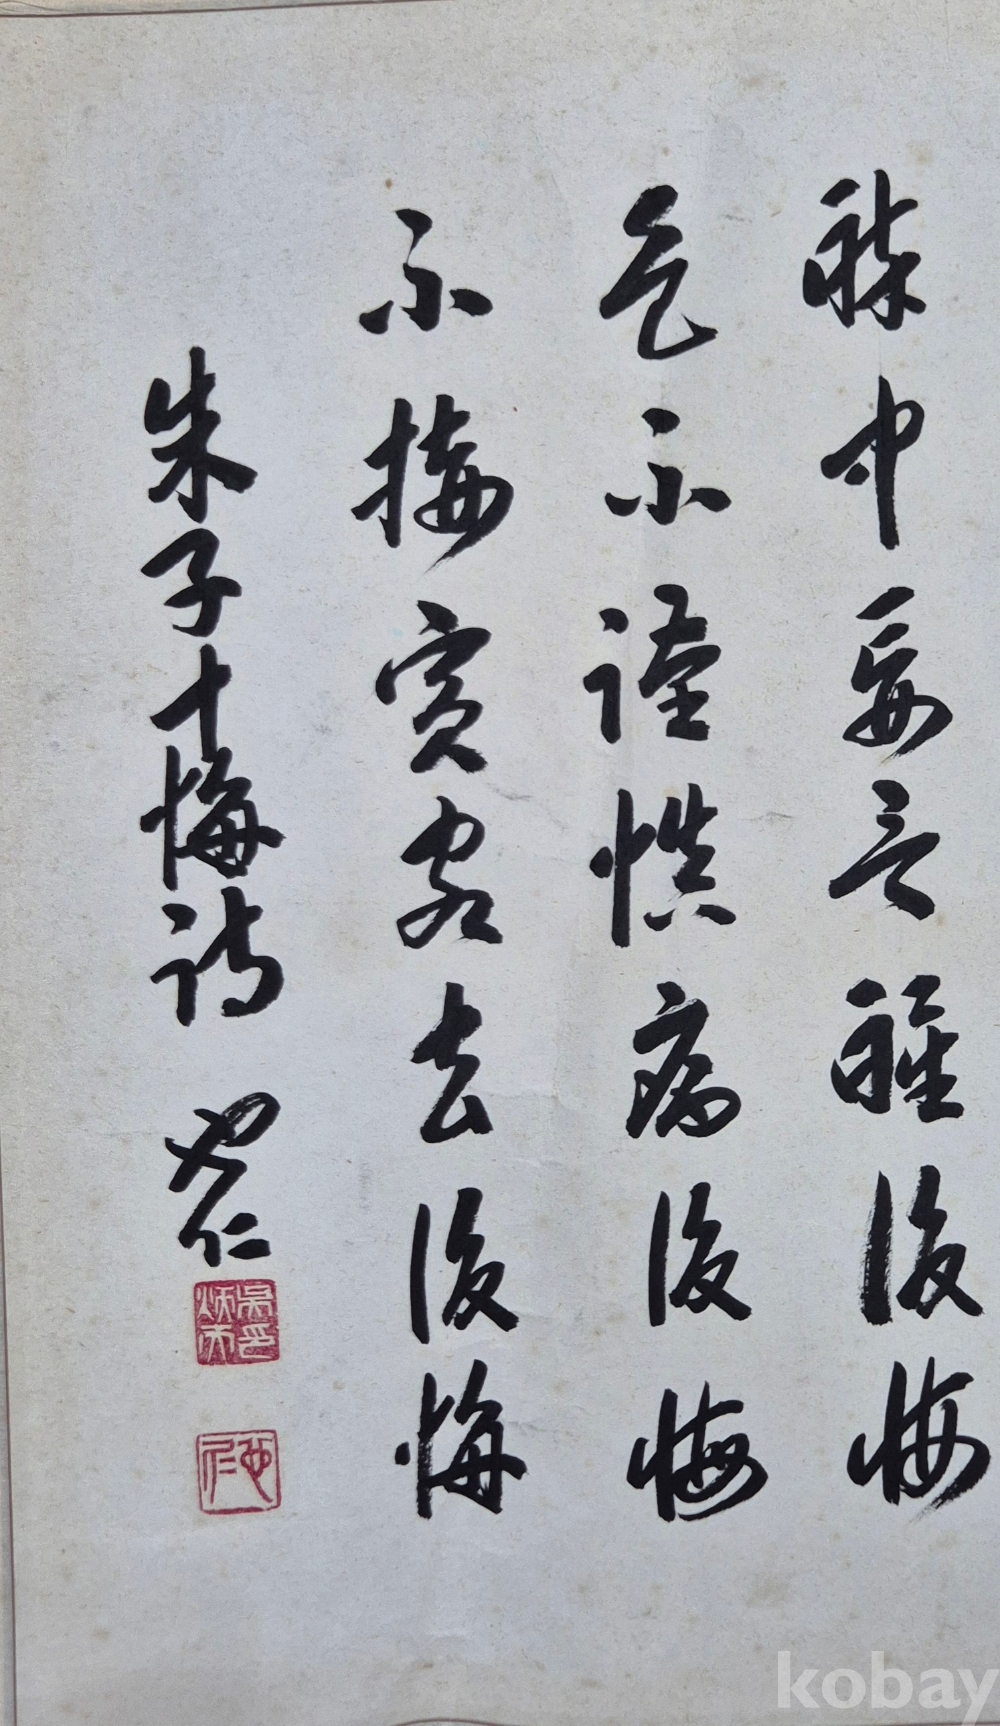 醉中妄言醒後悔
色不謹慎病後悔
不接賓客去後悔
朱子十悔詩 仁
kobay